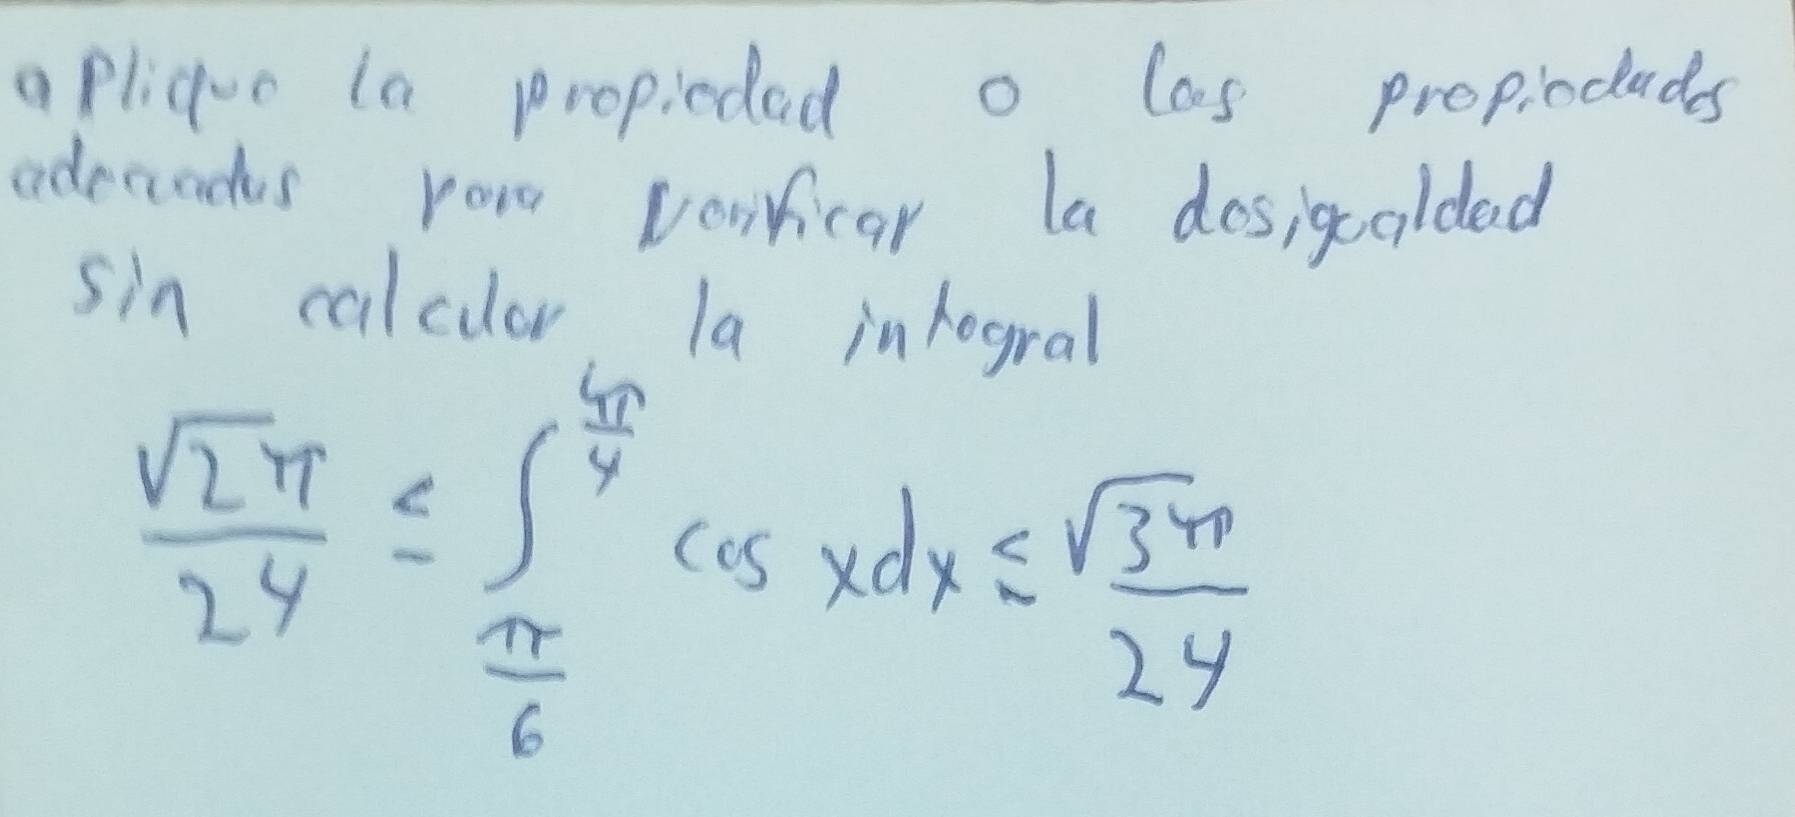 aplique la propiedad o las propiedades
adecuadas para verificar la desigualdad
sin calcular la integral
√2π/24 ≤ ∫_{π/6}^{π/4} cos x dx ≤ √3π/24